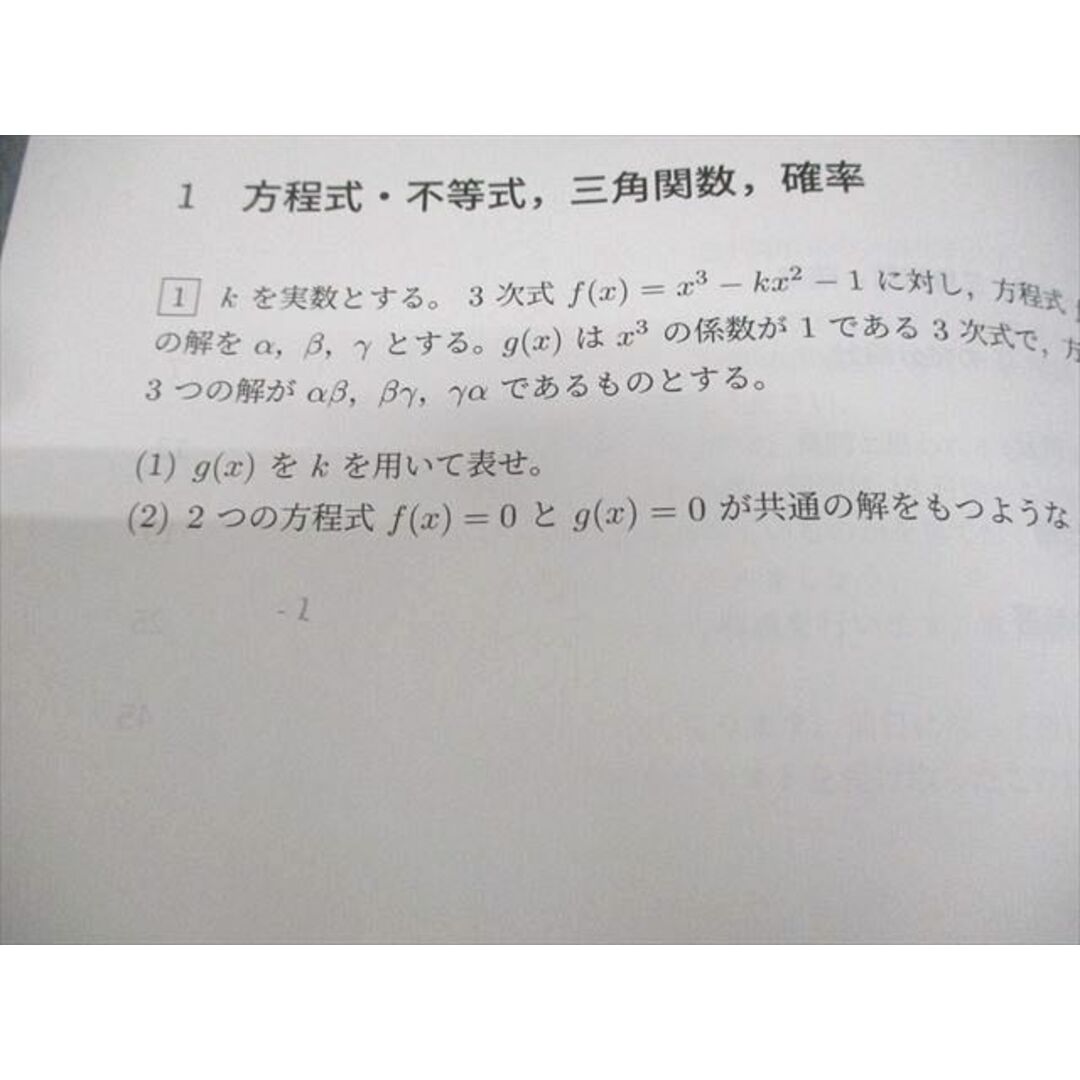 1 方程式・不等式，三角関数，確率
1 k を実数とする。 3 次式 f(x) = x³ − kx² − 1 に対し，方程式
の解を α, β, γ とする。g(x) は x³ の係数が 1 である 3 次式で，方
3 つの解が αβ, βγ, γα であるものとする。
(1) g(x) を k を用いて表せ。
(2) 2 つの方程式 f(x) = 0 と g(x) = 0 が共通の解をもつような
- 1
25
45